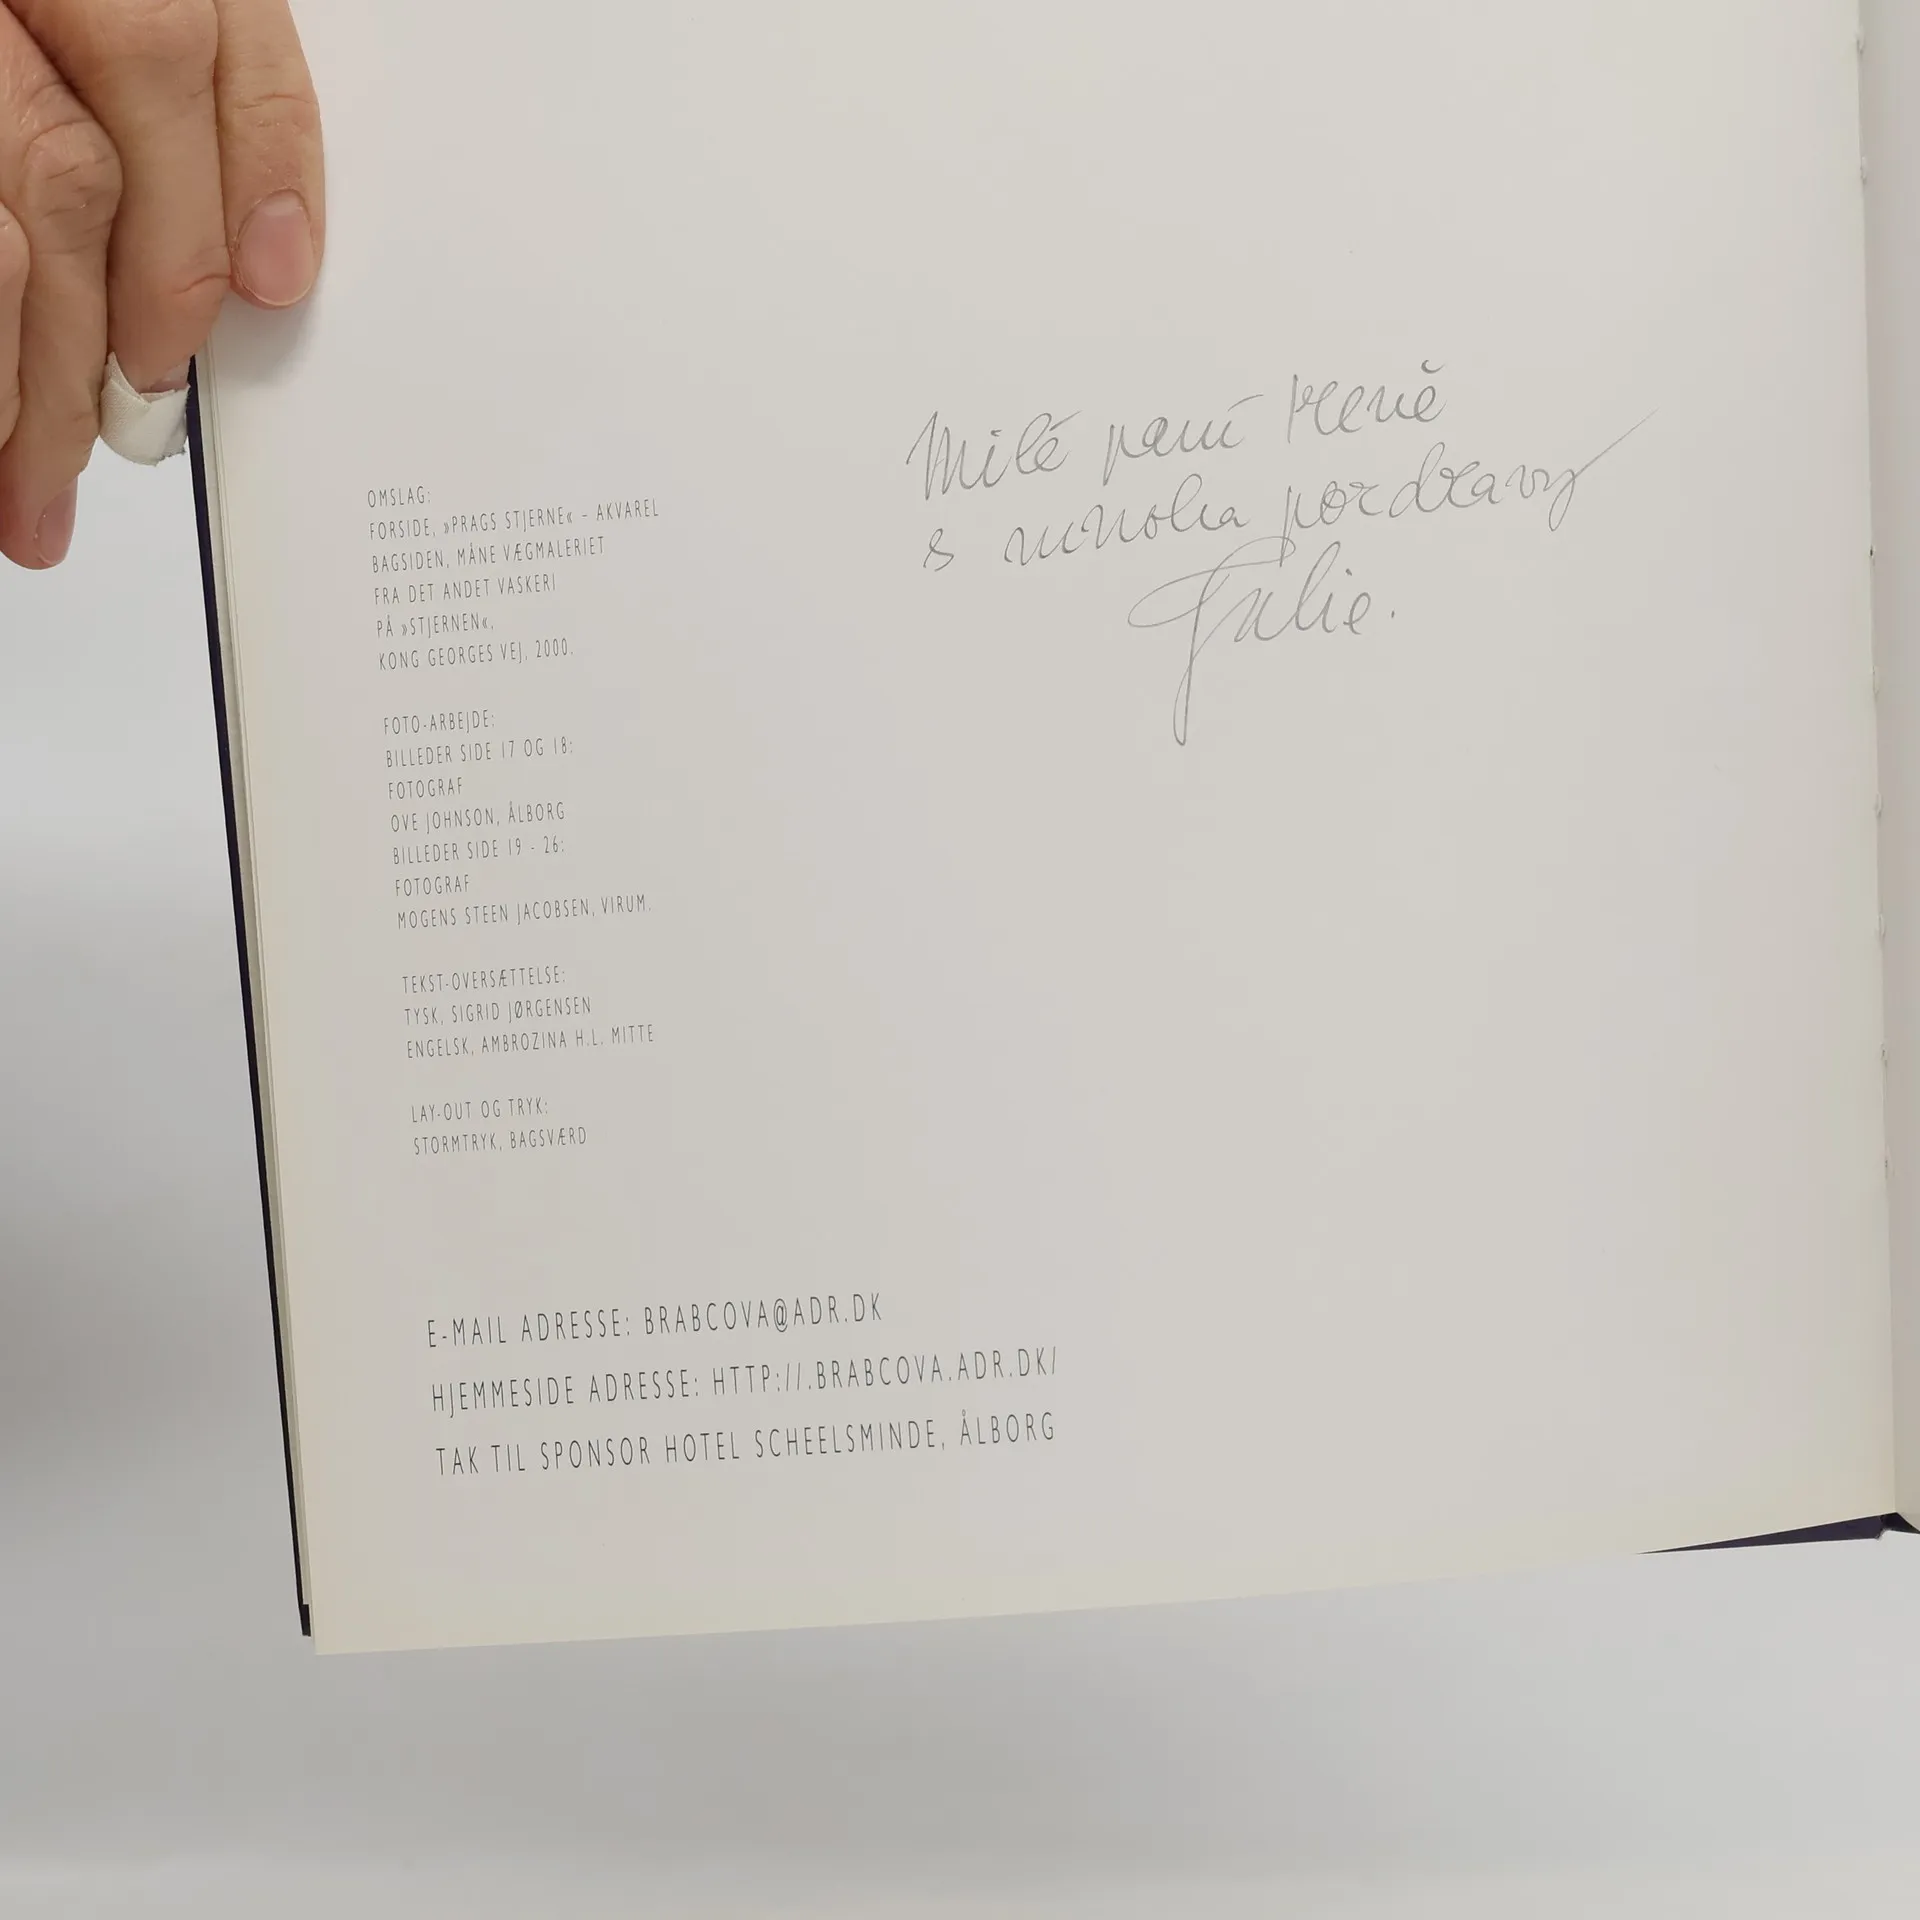 OMSLAG:
FORSIDE, »PRAGS STJERNE« – AKVAREL
BAGSIDEN, MÅNE VÆGMALERIET
FRA DET ANDET VASKERI
PÅ »STJERNEN«,
KONG GEORGES VEJ, 2000.
FOTO-ARBEJDE:
BILLEDER SIDE 17 OG 18:
FOTOGRAF
OVE JOHNSON, ÅLBORG
BILLEDER SIDE 19 - 26:
FOTOGRAF
MOGENS STEEN JACOBSEN, VIRUM.
TEKST-OVERSÆTTELSE:
TYSK, SIGRID JØRGENSEN
ENGELSK, AMBROZINA H.L. MITTE
LAY-OUT OG TRYK:
STORMTRYK, BAGSVÆRD
Milé paní
s mnoha pozdravy
Julie.
E-MAIL ADRESSE: BRABCOVA@ADR.DK
HJEMMESIDE ADRESSE: HTTP://.BRABCOVA.ADR.DK/
TAK TIL SPONSOR HOTEL SCHEELSMINDE, ÅLBORG